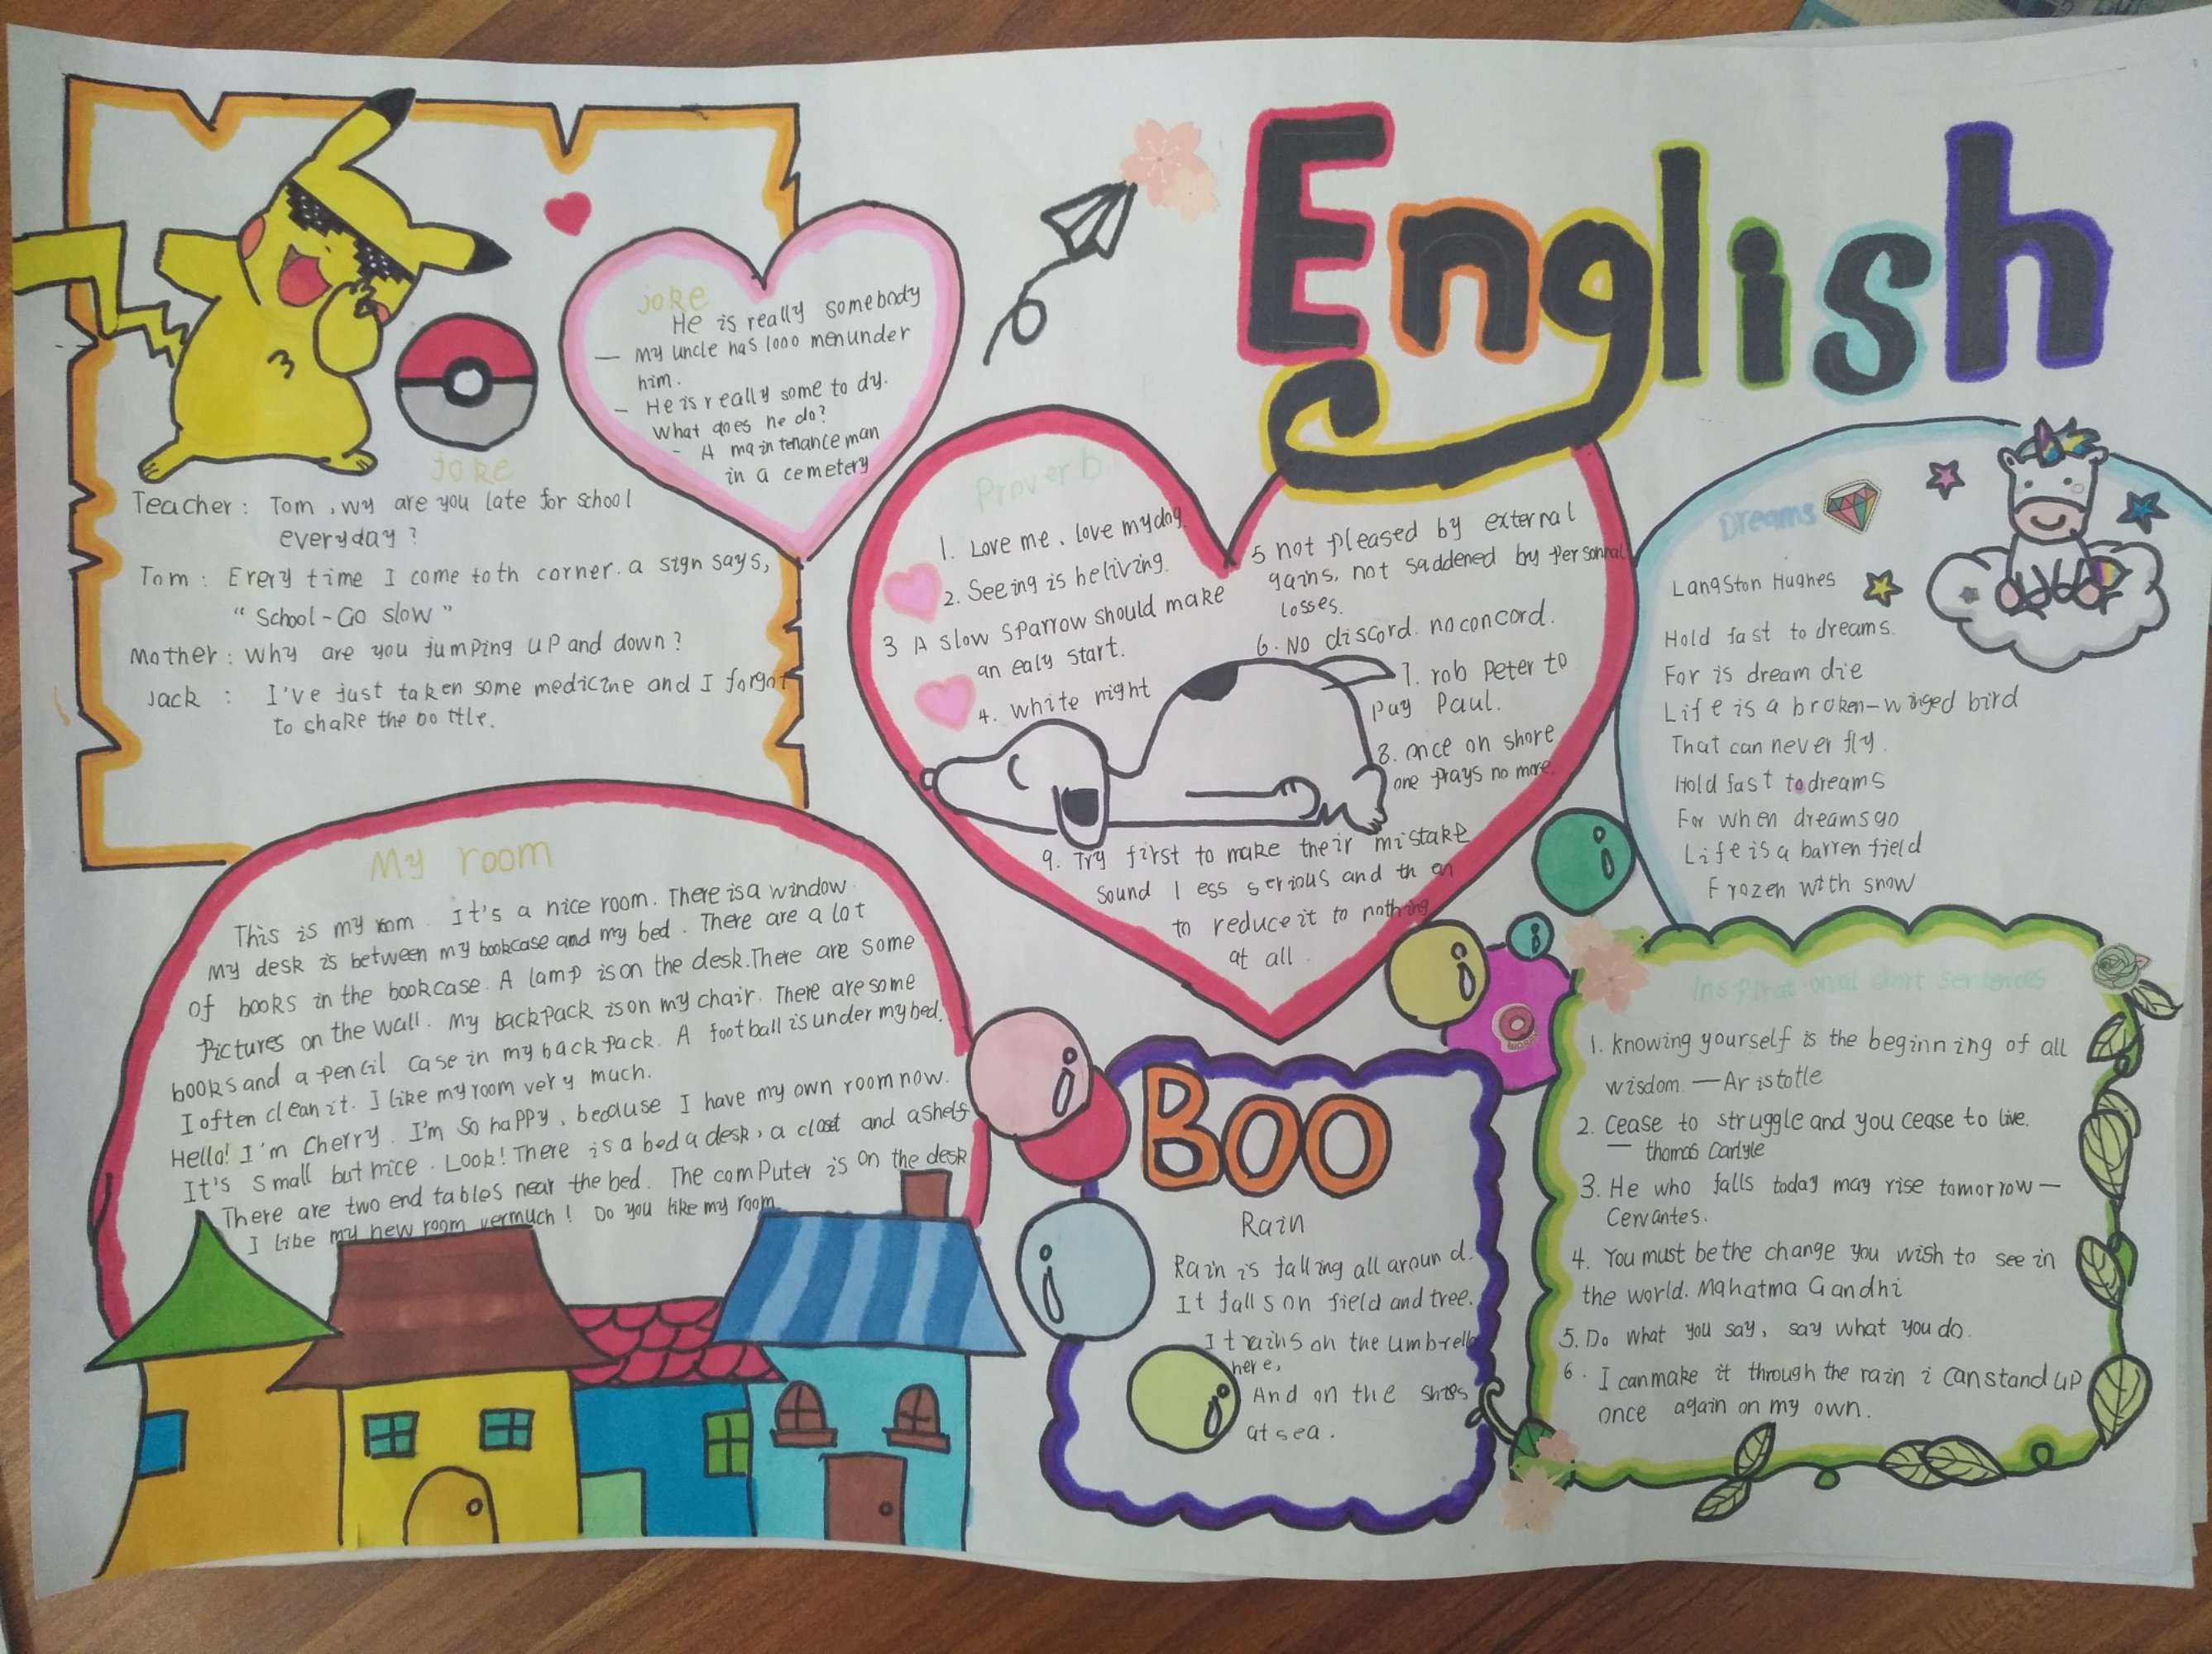 English
joke
Teacher: Tom, wy are you late for school
everyday?
Tom: Erery time I come to th corner. a sign says,
"School-Go slow"
Mother: Why are you jumping up and down?
Jack: I've just taken some medicine and I forgot
to chake the bottle.
joke
He is really somebody
— My uncle has 1000 men under
him.
— He is really some to dy.
What does he do?
- A maintenance man
in a cemetery
Proverb
1. Love me, love my dog.
2. Seeing is beliving.
3 A slow sparrow should make
an ealy start.
4. white night
5 not pleased by external
gains, not saddened by personnal
losses.
6. No discord. no concord.
7. rob Peter to
pay Paul.
8. once on shore
one prays no more.
9. Try first to make their mistake
sound less serious and then
to reduce it to nothing
at all.
Dreams
Langston Hughes
Hold fast to dreams.
For is dream die
Life is a broken-winged bird
That can never fly.
Hold fast to dreams
For when dreams go
Life is a barren field
Frozen with snow
My room
This is my room. It's a nice room. There is a window.
My desk is between my bookcase and my bed. There are a lot
of books in the bookcase. A lamp is on the desk. There are some
Pictures on the wall. My backpack is on my chair. There are some
books and a pencil case in my backpack. A football is under my bed.
I often clean it. I like my room very much.
Hello! I'm Cherry. I'm so happy, because I have my own room now.
It's small but nice. Look! There is a bed a desk, a closet and a shelf
There are two end tables near the bed. The computer is on the desk
I like my new room vermuch! Do you like my room
BOO
Rain
Rain is falling all around.
It falls on field and tree.
It rains on the umbrella
here,
And on the ships
at sea.
Inspirational short sentences
1. knowing yourself is the beginning of all
wisdom. —Aristotle
2. Cease to struggle and you cease to live.
— thomas Carlyle
3. He who falls today may rise tomorrow —
Cervantes.
4. You must be the change you wish to see in
the world. Mahatma Gandhi
5. Do what you say, say what you do.
6. I can make it through the rain i can stand up
once again on my own.